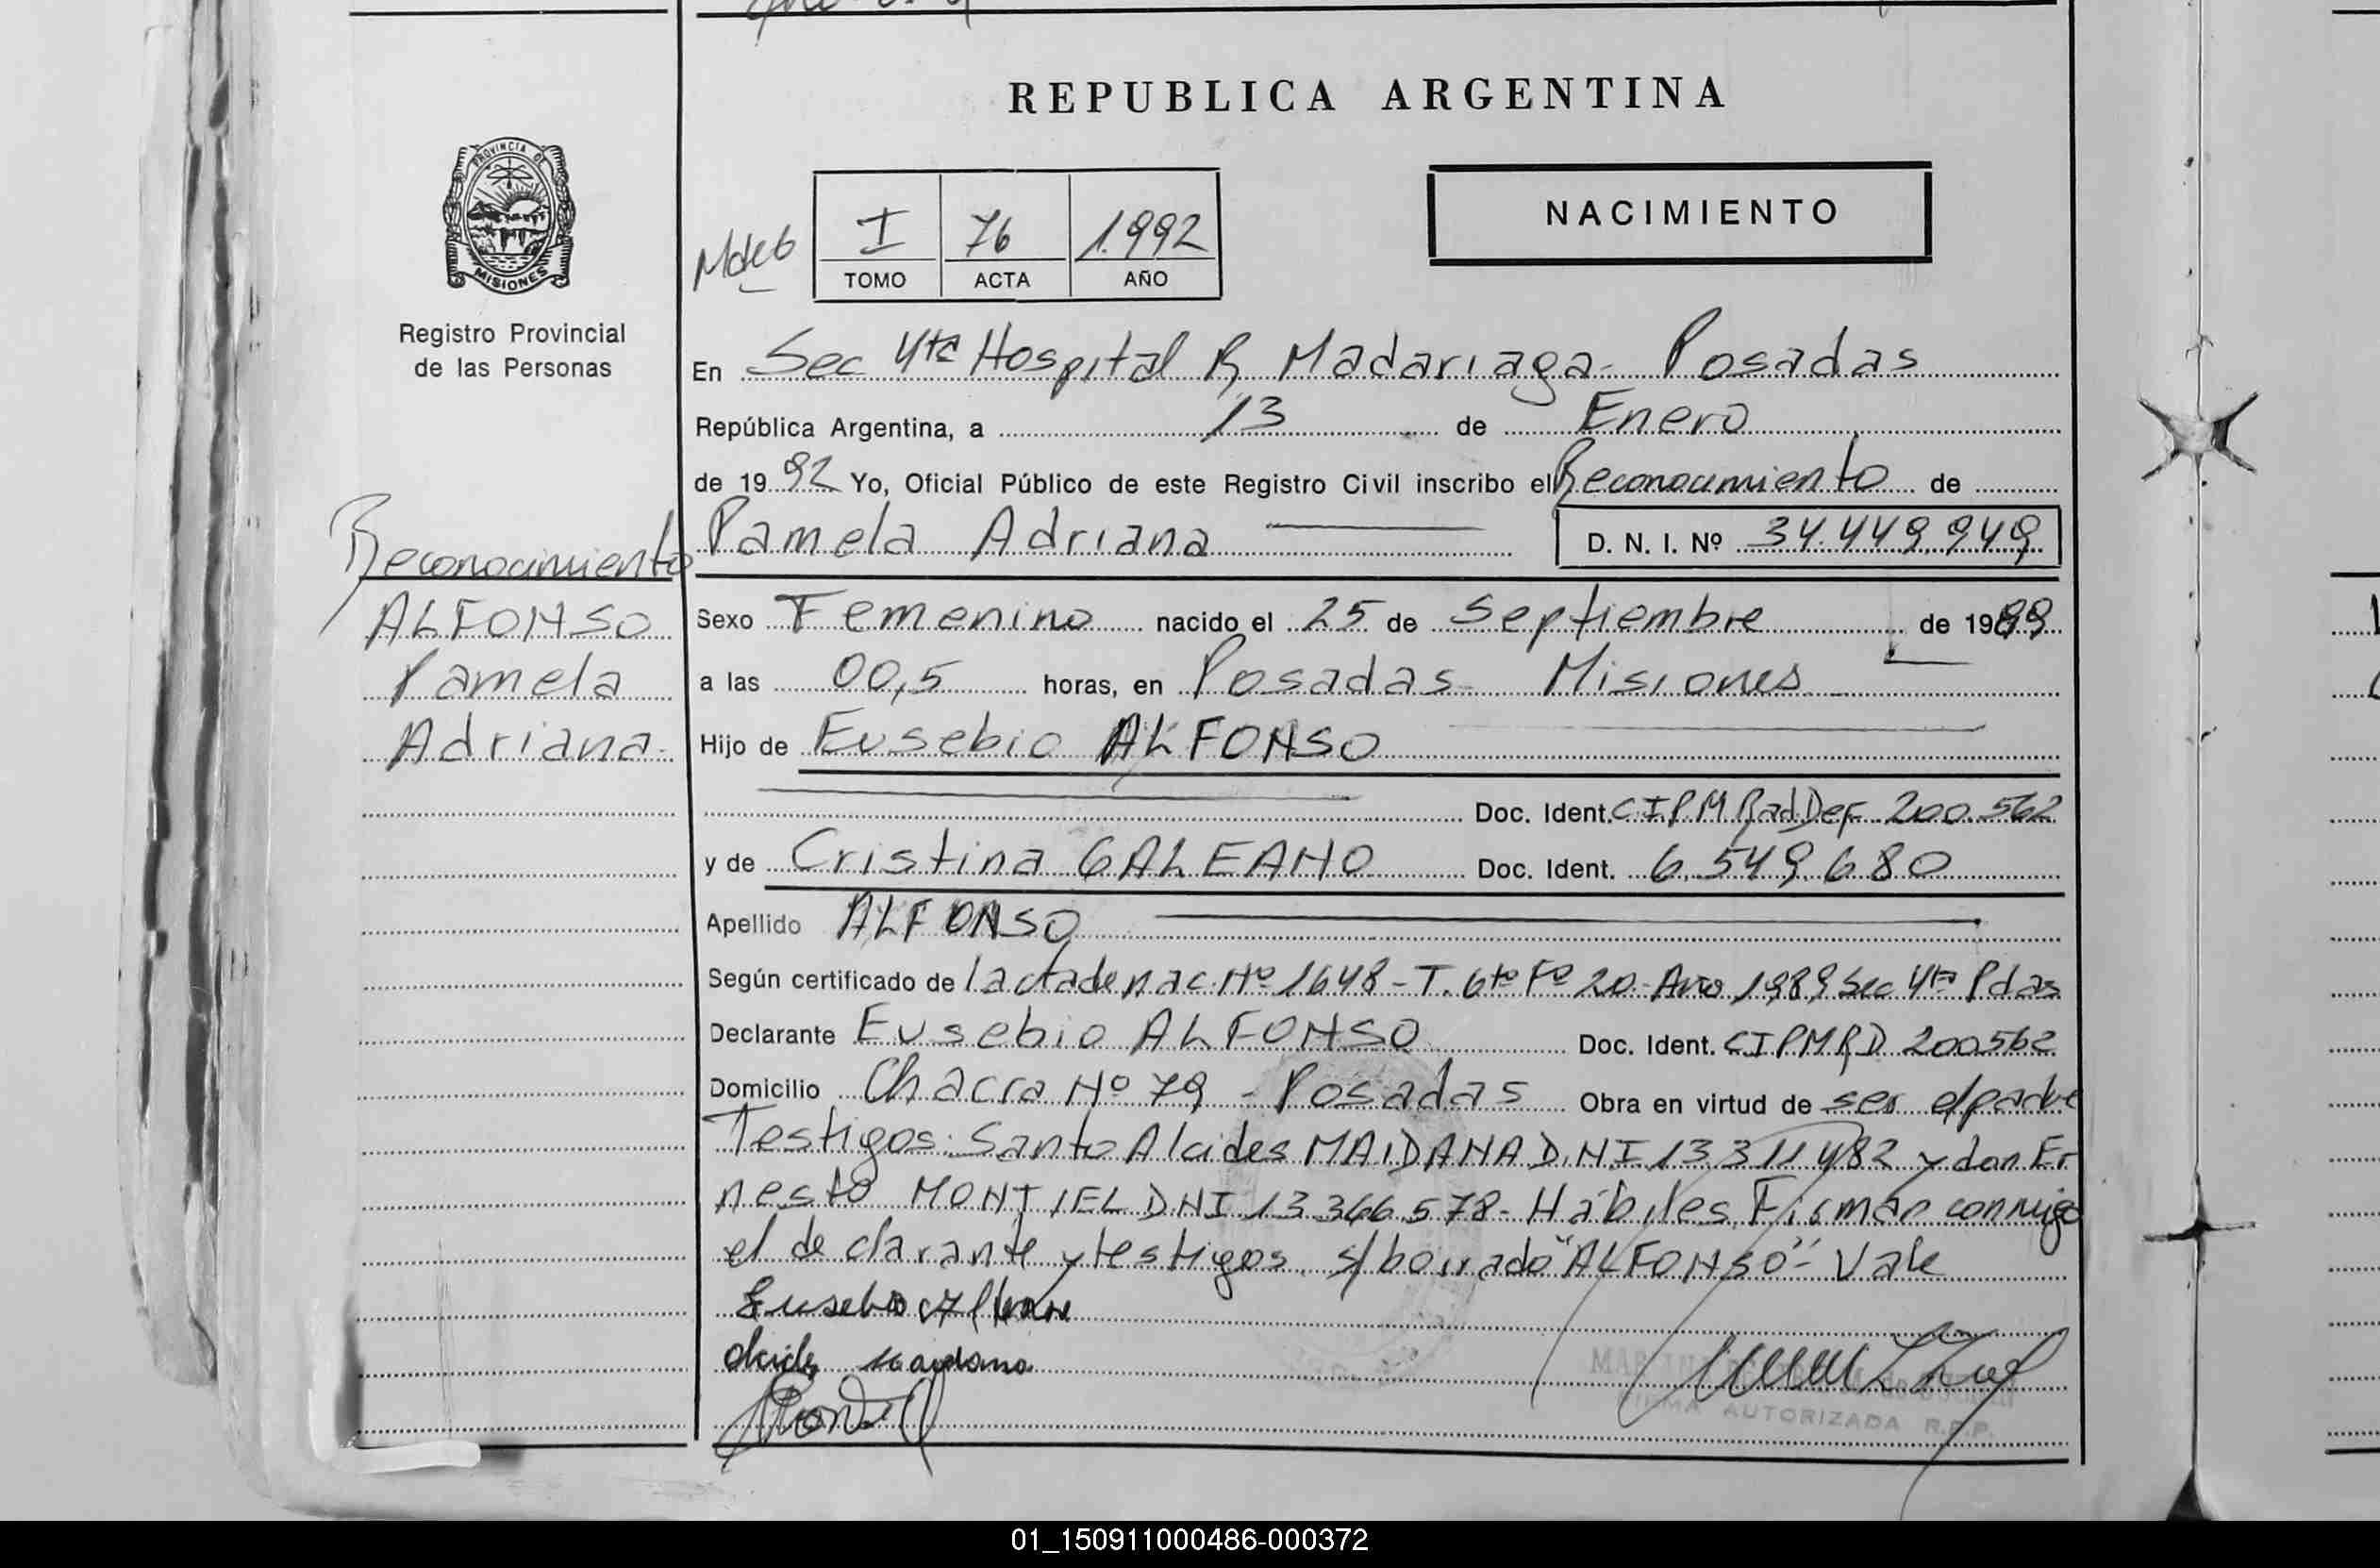 REPUBLICA ARGENTINA
PROVINCIA DE
MISIONES
Registro Provincial
de las Personas
NACIMIENTO
I 76 1.992
TOMO ACTA AÑO
En Sec 4ta Hospital R Madariaga - Posadas
República Argentina, a 13 de Enero
de 1992 Yo, Oficial Público de este Registro Civil inscribo el Reconocimiento de
Pamela Adriana D. N. I. Nº 34.449.949
Reconocimiento
ALFONSO
Pamela
Adriana-
Sexo Femenino nacido el 25 de Septiembre de 1989
a las 00,5 horas, en Posadas - Misiones
Hijo de Eusebio ALFONSO
Doc. Ident. CIPM Rad Def 200.562
y de Cristina GALEANO Doc. Ident. 6.549.680
Apellido ALFONSO
Según certificado de l acta de nac. Nº 1648 - T. 6to Fº 20 - Año 1989 Sec 4ta Pdas
Declarante Eusebio ALFONSO Doc. Ident. CIPMRD 200562
Domicilio Chacra Nº 79 - Posadas Obra en virtud de ser el padre
Testigos: Santo Alcides MAIDANA D.N.I 13 311 482 y don Er
nesto MONTIEL DNI 13.366.578 - Hábiles Firman conmigo
el declarante y testigos. s/borrado "ALFONSO" - Vale
Eusebio
FIRMA AUTORIZADA R.P.P.
01_150911000486-000372